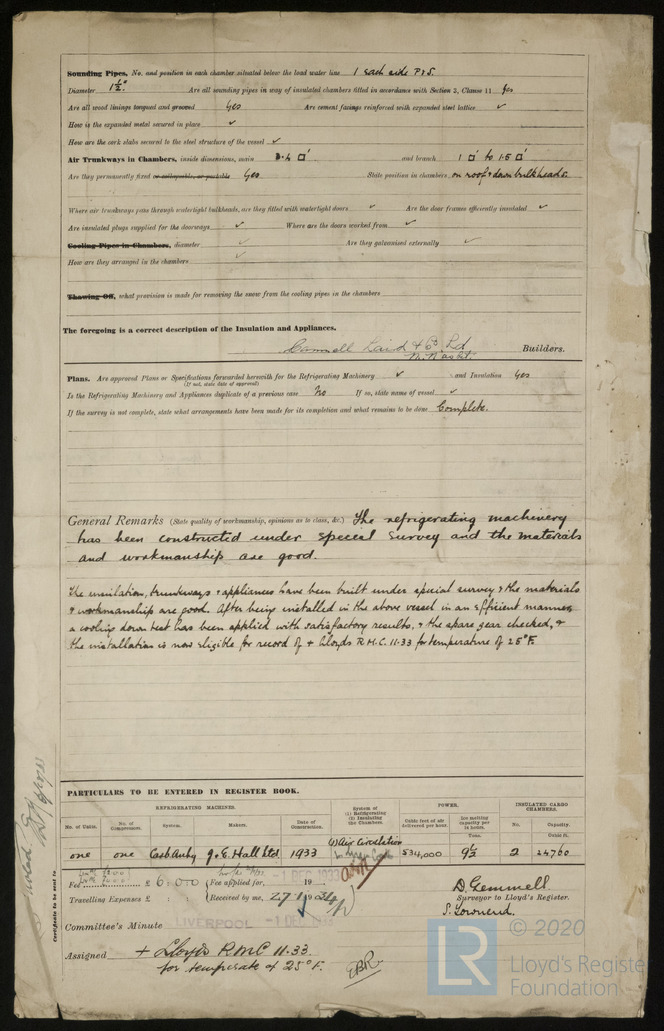 Sounding Pipes, No. and position in each chamber situated below the load water line 1 each side P & S.
Diameter 1½" Are all sounding pipes in way of insulated chambers fitted in accordance with Section 2, Clause 11 Yes
Are all wood linings tongued and grooved Yes Are cement facings reinforced with expanded steel lattice ✓
How is the expanded metal secured in place ✓
How are the cork slabs secured to the steel structure of the vessel ✓
Air Trunkways in Chambers, inside dimensions, main 3.4 □' and branch 1 □' to 1.5 □'
Are they permanently fixed or collapsible, or portable Yes State position in chambers on roof & down bulkheads.
Where air trunkways pass through watertight bulkheads, are they fitted with watertight doors ✓ Are the door frames efficiently insulated ✓
Are insulated plugs supplied for the doorways ✓ Where are the doors worked from ✓
Cooling Pipes in Chambers, diameter ✓ Are they galvanised externally ✓
How are they arranged in the chambers ✓
Thawing Off, what provision is made for removing the snow from the cooling pipes in the chambers
The foregoing is a correct description of the Insulation and Appliances.
Cammell Laird & Co Ld
Builders.
Plans. Are approved Plans or Specifications forwarded herewith for the Refrigerating Machinery ✓ and Insulation Yes
(If not, state date of approval)
Is the Refrigerating Machinery and Appliances duplicate of a previous case No If so, state name of vessel ✓
If the survey is not complete, state what arrangements have been made for its completion and what remains to be done Complete.
General Remarks (State quality of workmanship, opinions as to class, &c.) The refrigerating machinery
has been constructed under special survey and the materials
and workmanship are good.
The insulation, trunkways & appliances have been built under special survey & the materials
& workmanship are good. After being installed in the above vessel in an efficient manner,
a cooling down test has been applied with satisfactory results, & the spare gear checked, &
the installation is now eligible for record of + Lloyds R.M.C. 11.33 for temperature of 25°F.
PARTICULARS TO BE ENTERED IN REGISTER BOOK.
REFRIGERATING MACHINES. System of (1) Refrigerating (2) Insulating the Chambers. POWER. INSULATED CARGO CHAMBERS.
No. of Units. No. of Compressors. System. Makers. Date of Construction. Cubic feet of air delivered per hour. Ice melting capacity per 24 hours. No. Capacity.
Tons. Cubic ft.
(1) Air Circulation
one one J & E. Hall Ltd 1933 534,000 9½ 2 24760
Fee £ 6:0:0 Fee applied for, 1 DEC 1933 19
Travelling Expenses £ : : Received by me, 27.1.1934
D. Gemmell
Surveyor to Lloyd's Register.
S. Townend.
LIVERPOOL -1 DEC 1933
Committee's Minute
Assigned + Lloyds RMC 11.33
for temperature of 25°F.
Certificate to be sent to
© 2020
LR
Lloyd's Register
Foundation